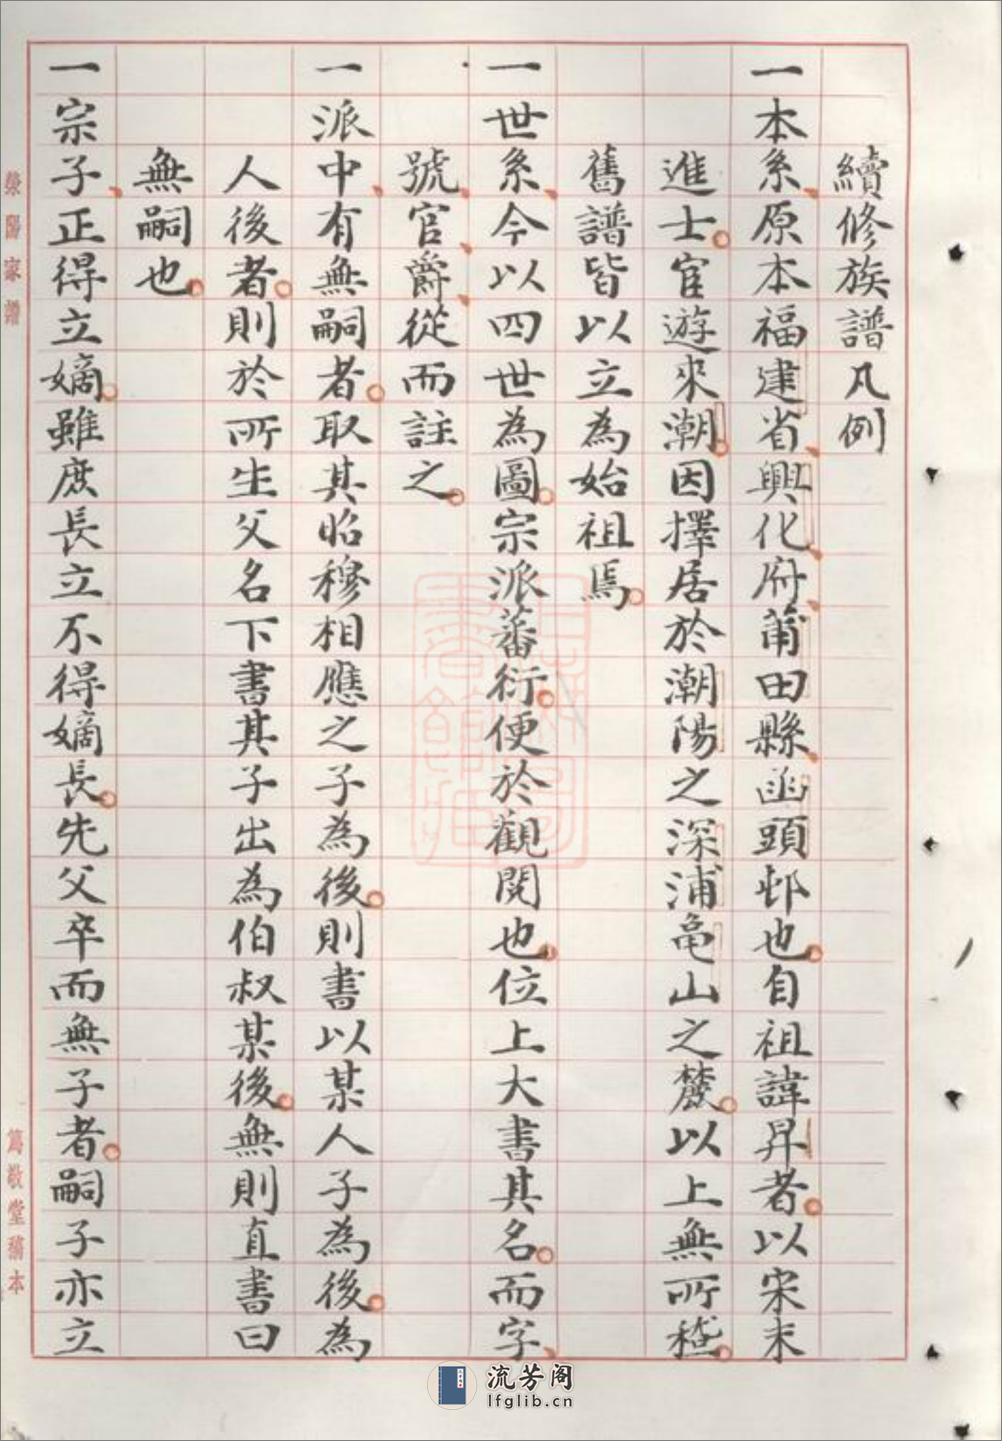 續修族譜凡例
一本系、原本福建省、興化府、莆田縣、函頭邨也。自祖諱昇者。以宋末
進士。官遊來潮。因擇居於潮陽之深浦黽山之麓。以上無所稽。
舊譜皆以立為始祖焉。
一世系、今以四世為圖。宗派蕃衍。便於觀閱也。位上大書其名。而字、
號、官、爵、從而註之。
一派中、有無嗣者。取其昭穆相應之子為後。則書以某人子為後。為
人後者。則於所生父名下書其子出為伯叔某後。無則直書曰
無嗣也。
一宗子、正得立嫡。雖庶長立不得嫡長。先父卒而無子者。嗣子亦立
滎陽家譜
篤敬堂稿本
流芳阁
lfglib.cn